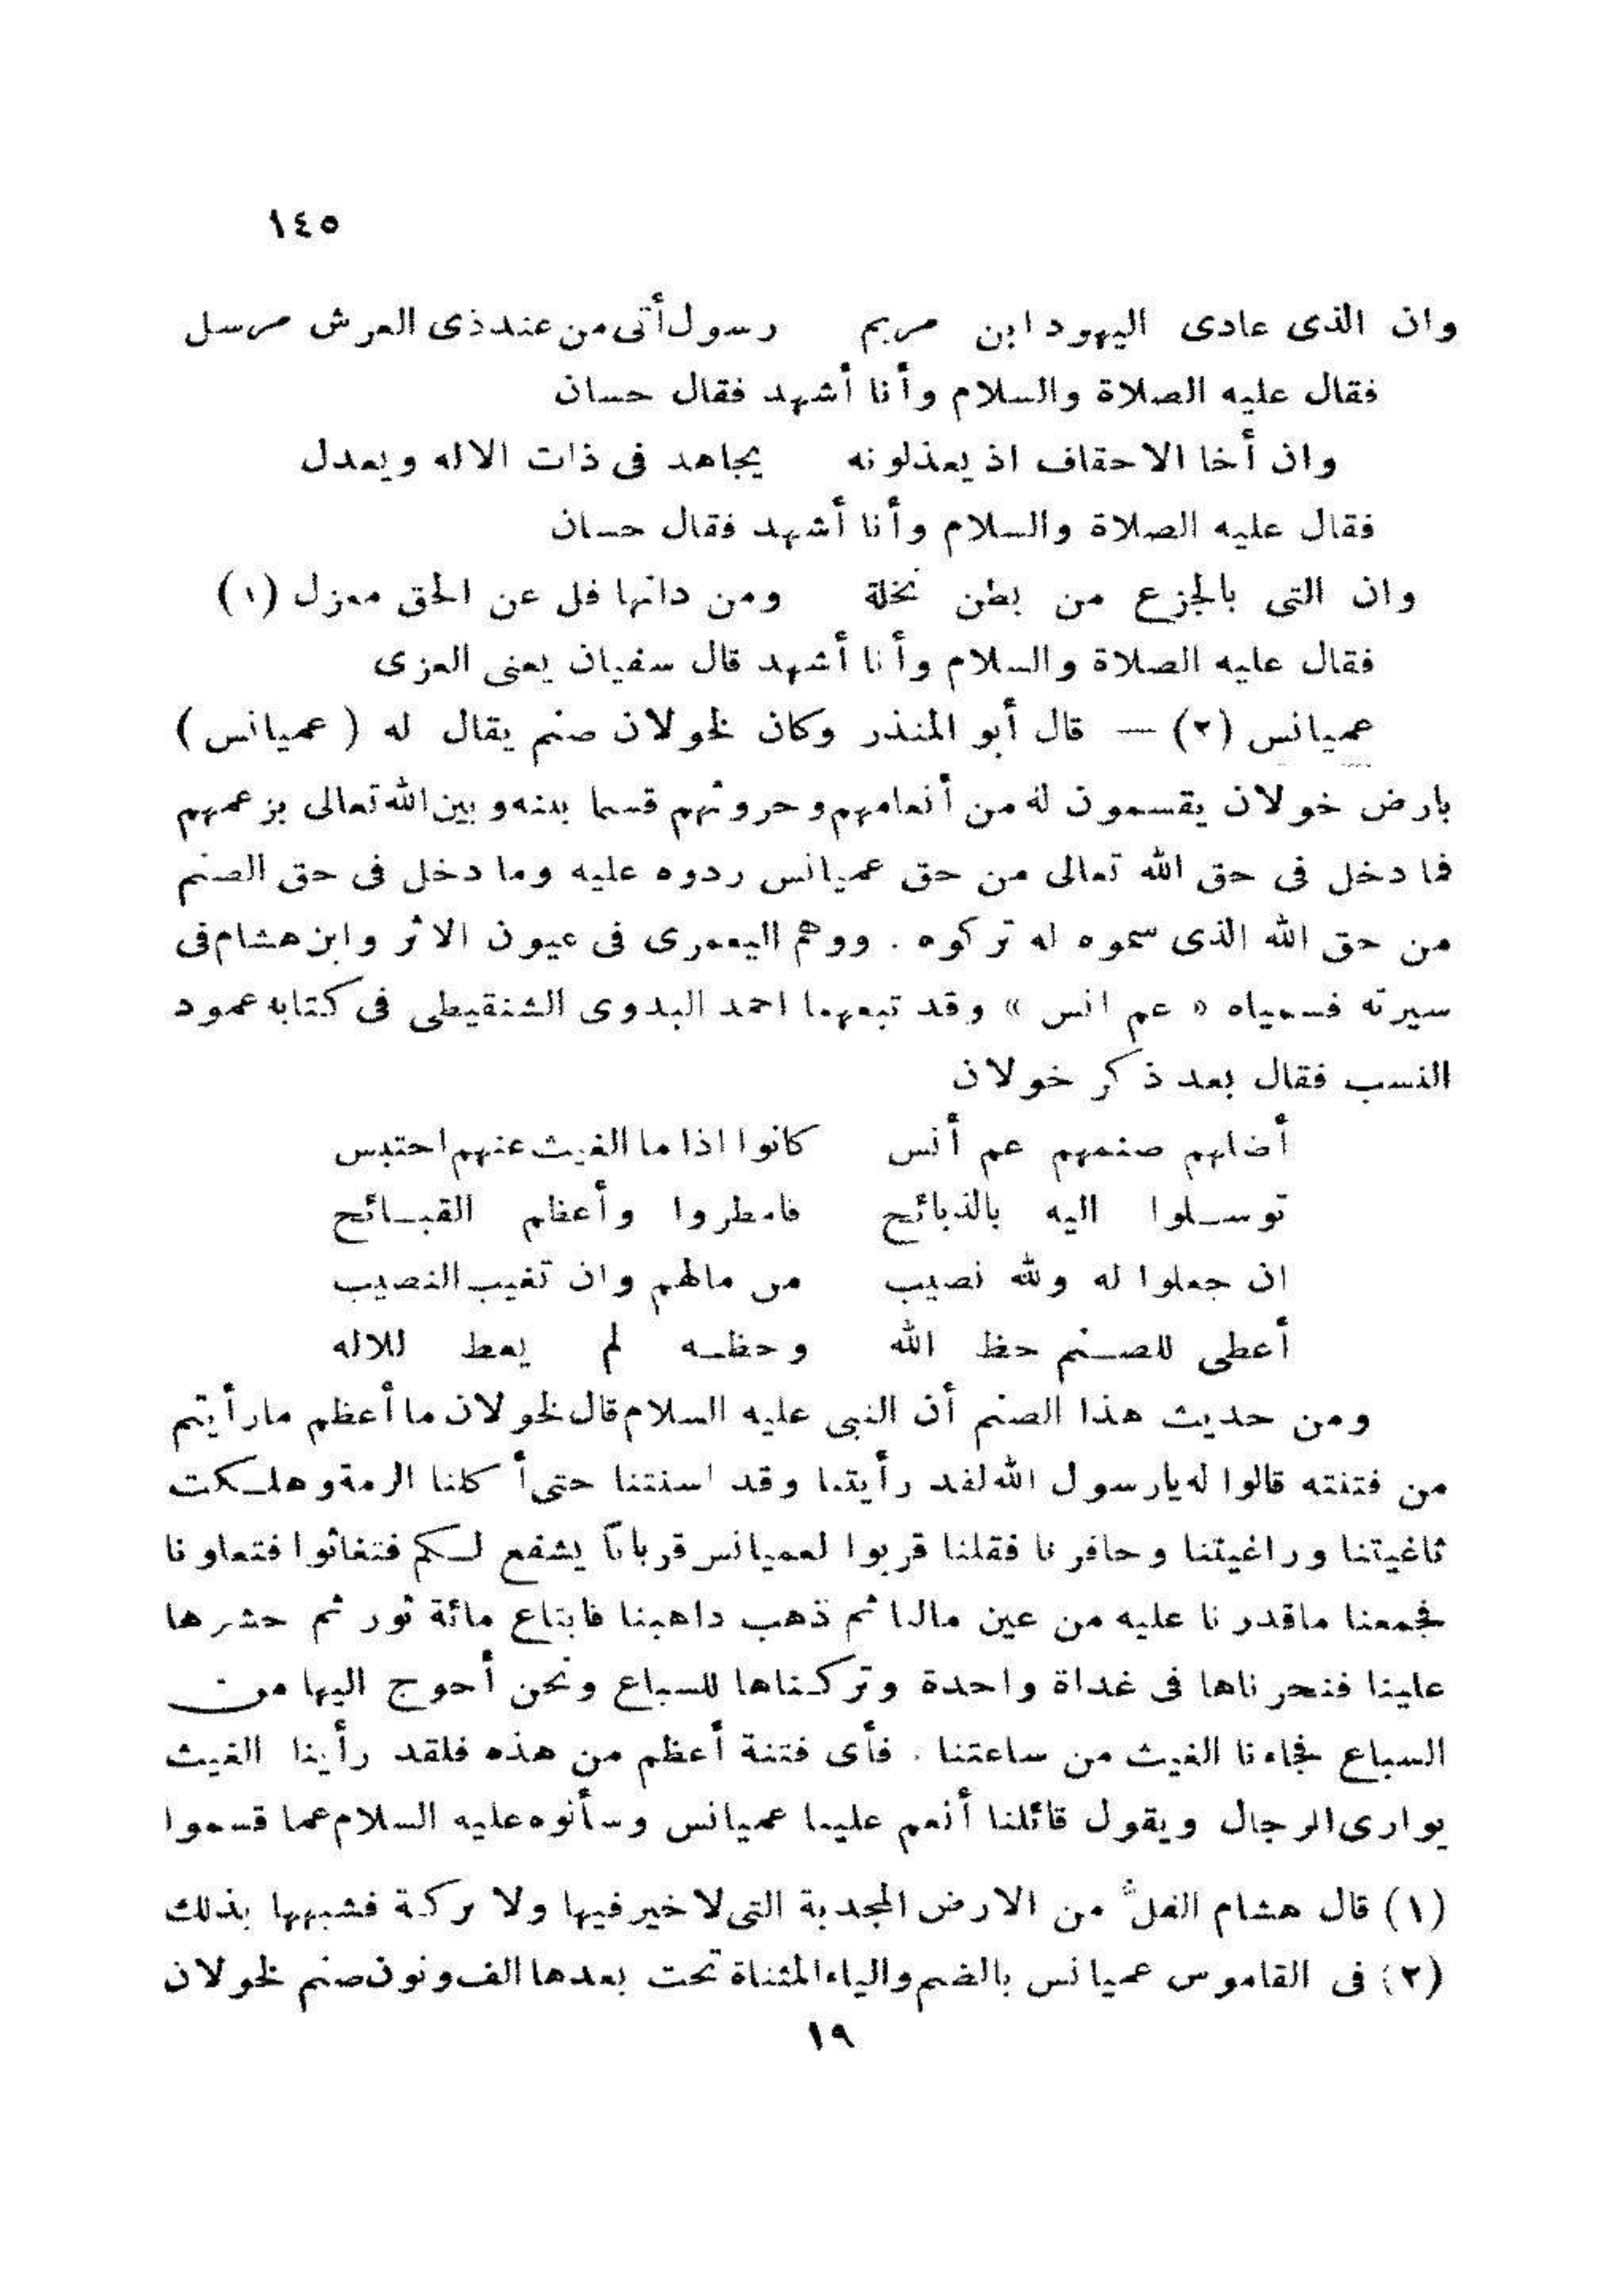 ١٤٥
وان الذى عادى اليهود ابن مريم رسول أتى من عند ذى العرش مرسل
فقال عليه الصلاة والسلام وأنا أشهد فقال حسان
وان أخا الاحقاف اذ يعذلونه يجاهد فى ذات الاله ويعدل
فقال عليه الصلاة والسلام وأنا أشهد فقال حسان
وان التى بالجزع من بطن نخلة ومن دانها فل عن الحق معزل (١)
فقال عليه الصلاة والسلام وأنا أشهد قال سفيان يعنى العزى
عميانس (٢) — قال أبو المنذر وكان لخولان صنم يقال له ( عميانس )
بارض خولان يقسمون له من أنعامهم وحروثهم قسما بينه وبين الله تعالى بزعمهم
فما دخل فى حق الله تعالى من حق عميانس ردوه عليه وما دخل فى حق الصنم
من حق الله الذى سموه له تركوه . ووهم اليعمرى فى عيون الاثر وابن هشام فى
سيرته فسمياه « عم انس » وقد تبعهما احمد البدوى الشنقيطى فى كتابه عمود
النسب فقال بعد ذكر خولان
أضلهم صنمهم عم أنس كانوا اذا ما الغيث عنهم احتبس
توسلوا اليه بالذبائح فامطروا وأعظم القبائح
ان جعلوا له ولله نصيب من مالهم وان تغيب النصيب
أعطى للصنم حظ الله وحظه لم يعط للاله
ومن حديث هذا الصنم أن النبى عليه السلام قال لخولان ما أعظم مارأيتم
من فتنته قالوا له يارسول الله لقد رأيتنا وقد اسنتنا حتى أكلنا الرمة وهلكت
ثاغيتنا وراغيتنا وحافرنا فقلنا قربوا لعميانس قربانا يشفع لكم فتغاثوا فتعاونا
فجمعنا ماقدرنا عليه من عين مالنا ثم ذهب ذاهبنا فابتاع مائة ثور ثم حشرها
علينا فنحرناها فى غداة واحدة وتركناها للسباع ونحن أحوج اليها من
السباع فجاءنا الغيث من ساعتنا . فأى فتنة أعظم من هذه فلقد رأينا الغيث
يوارى الرجال ويقول قائلنا أنعم علينا عميانس وسألوه عليه السلام عما قسموا
(١) قال هشام الفلّ من الارض المجدبة التى لا خير فيها ولا بركة فشبهها بذلك
(٢) فى القاموس عميانس بالضم والياء المثناة تحت بعدها الف ونون صنم لخولان
١٩